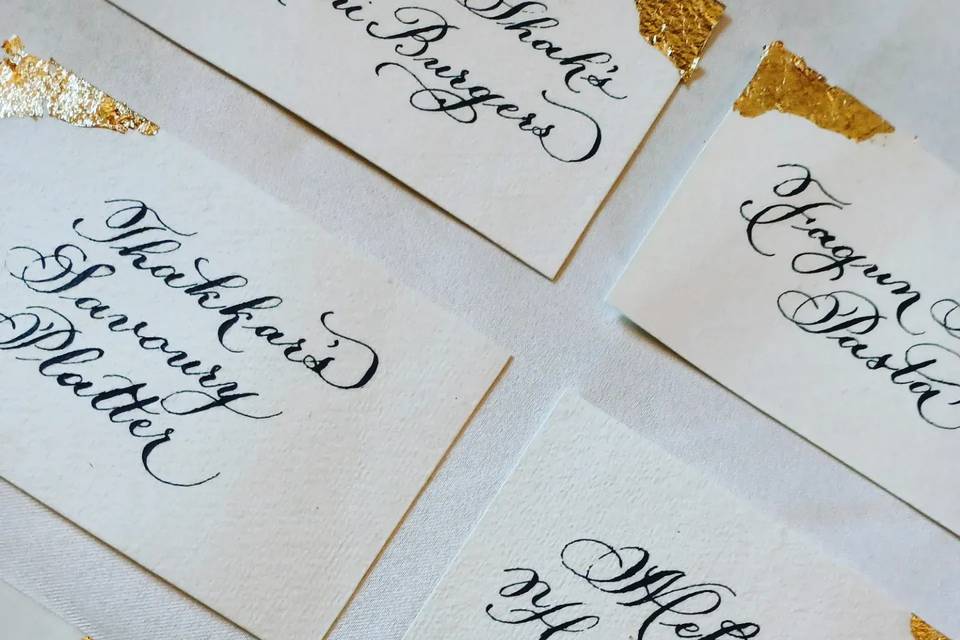 Shah's
Burgers
Thakkar's
Savoury
Platter
Fagun
Pasta